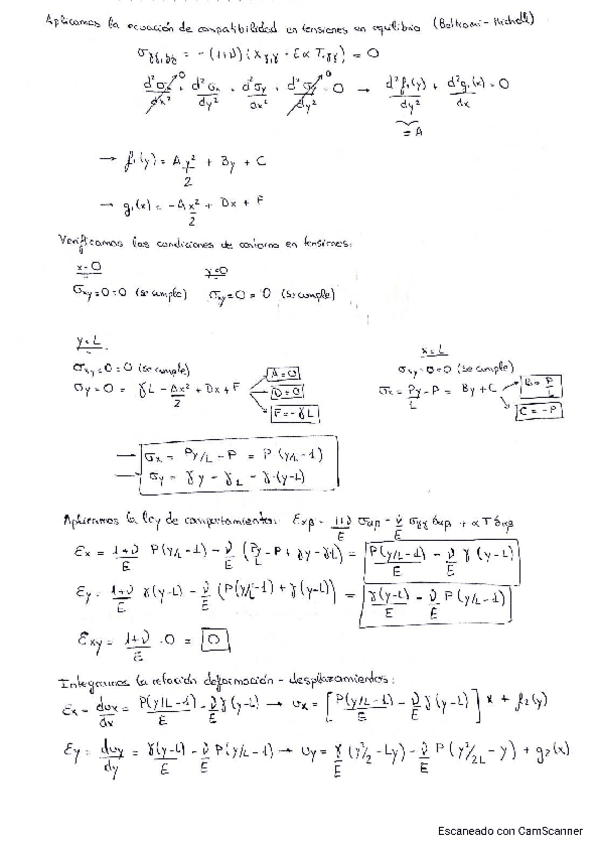 Aplicamos la ecuación de compatibilidad en tensiones en equilibrio (Beltrami-Michell)
σγγ,ββ = -(1+ν)(Xγ,γ - Eα T,γγ) = 0
d²σx/dx² + d²σx/dy² + d²σy/dx² + d²σy/dy² = 0 → d²f₁(y)/dy² + d²g₁(x)/dx = 0
0 0
= A
→ f₁(y) = A y²/2 + By + C
→ g₁(x) = -A x²/2 + Dx + F
Verificamos las condiciones de contorno en tensiones:
x=0
σxy = 0 = 0 (se cumple)
y=0
σxy = 0 = 0 (se cumple)
y=L
σxy = 0 = 0 (se cumple)
σy = 0 = γL - Ax²/2 + Dx + F
A=0
D=0
F=-γL
x=L
σxy = 0 = 0 (se cumple)
σx = Py/L - P = By + C
B = P/L
C = -P
→ σx = Py/L - P = P(y/L - 1)
→ σy = γy - γL = γ(y-L)
Aplicamos la ley de comportamiento: εαβ = 1+ν/E σαβ - ν/E σγγ δαβ + αT δαβ
εx = 1+ν/E P(y/L-1) - ν/E (Py/L - P + γy - γL) = P(y/L-1)/E - ν/E γ(y-L)
εy = 1+ν/E γ(y-L) - ν/E (P(y/L-1) + γ(y-L)) = γ(y-L)/E - ν/E P(y/L-1)
εxy = 1+ν/E · 0 = 0
Integramos la relación deformación - desplazamientos:
εx = dux/dx = P(y/L-1)/E - ν/E γ(y-L) → ux = [P(y/L-1)/E - ν/E γ(y-L)] x + f₂(y)
εy = duy/dy = γ(y-L)/E - ν/E P(y/L-1) → uy = γ/E (y²/2 - Ly) - ν/E P(y²/2L - y) + g₂(x)
Escaneado con CamScanner